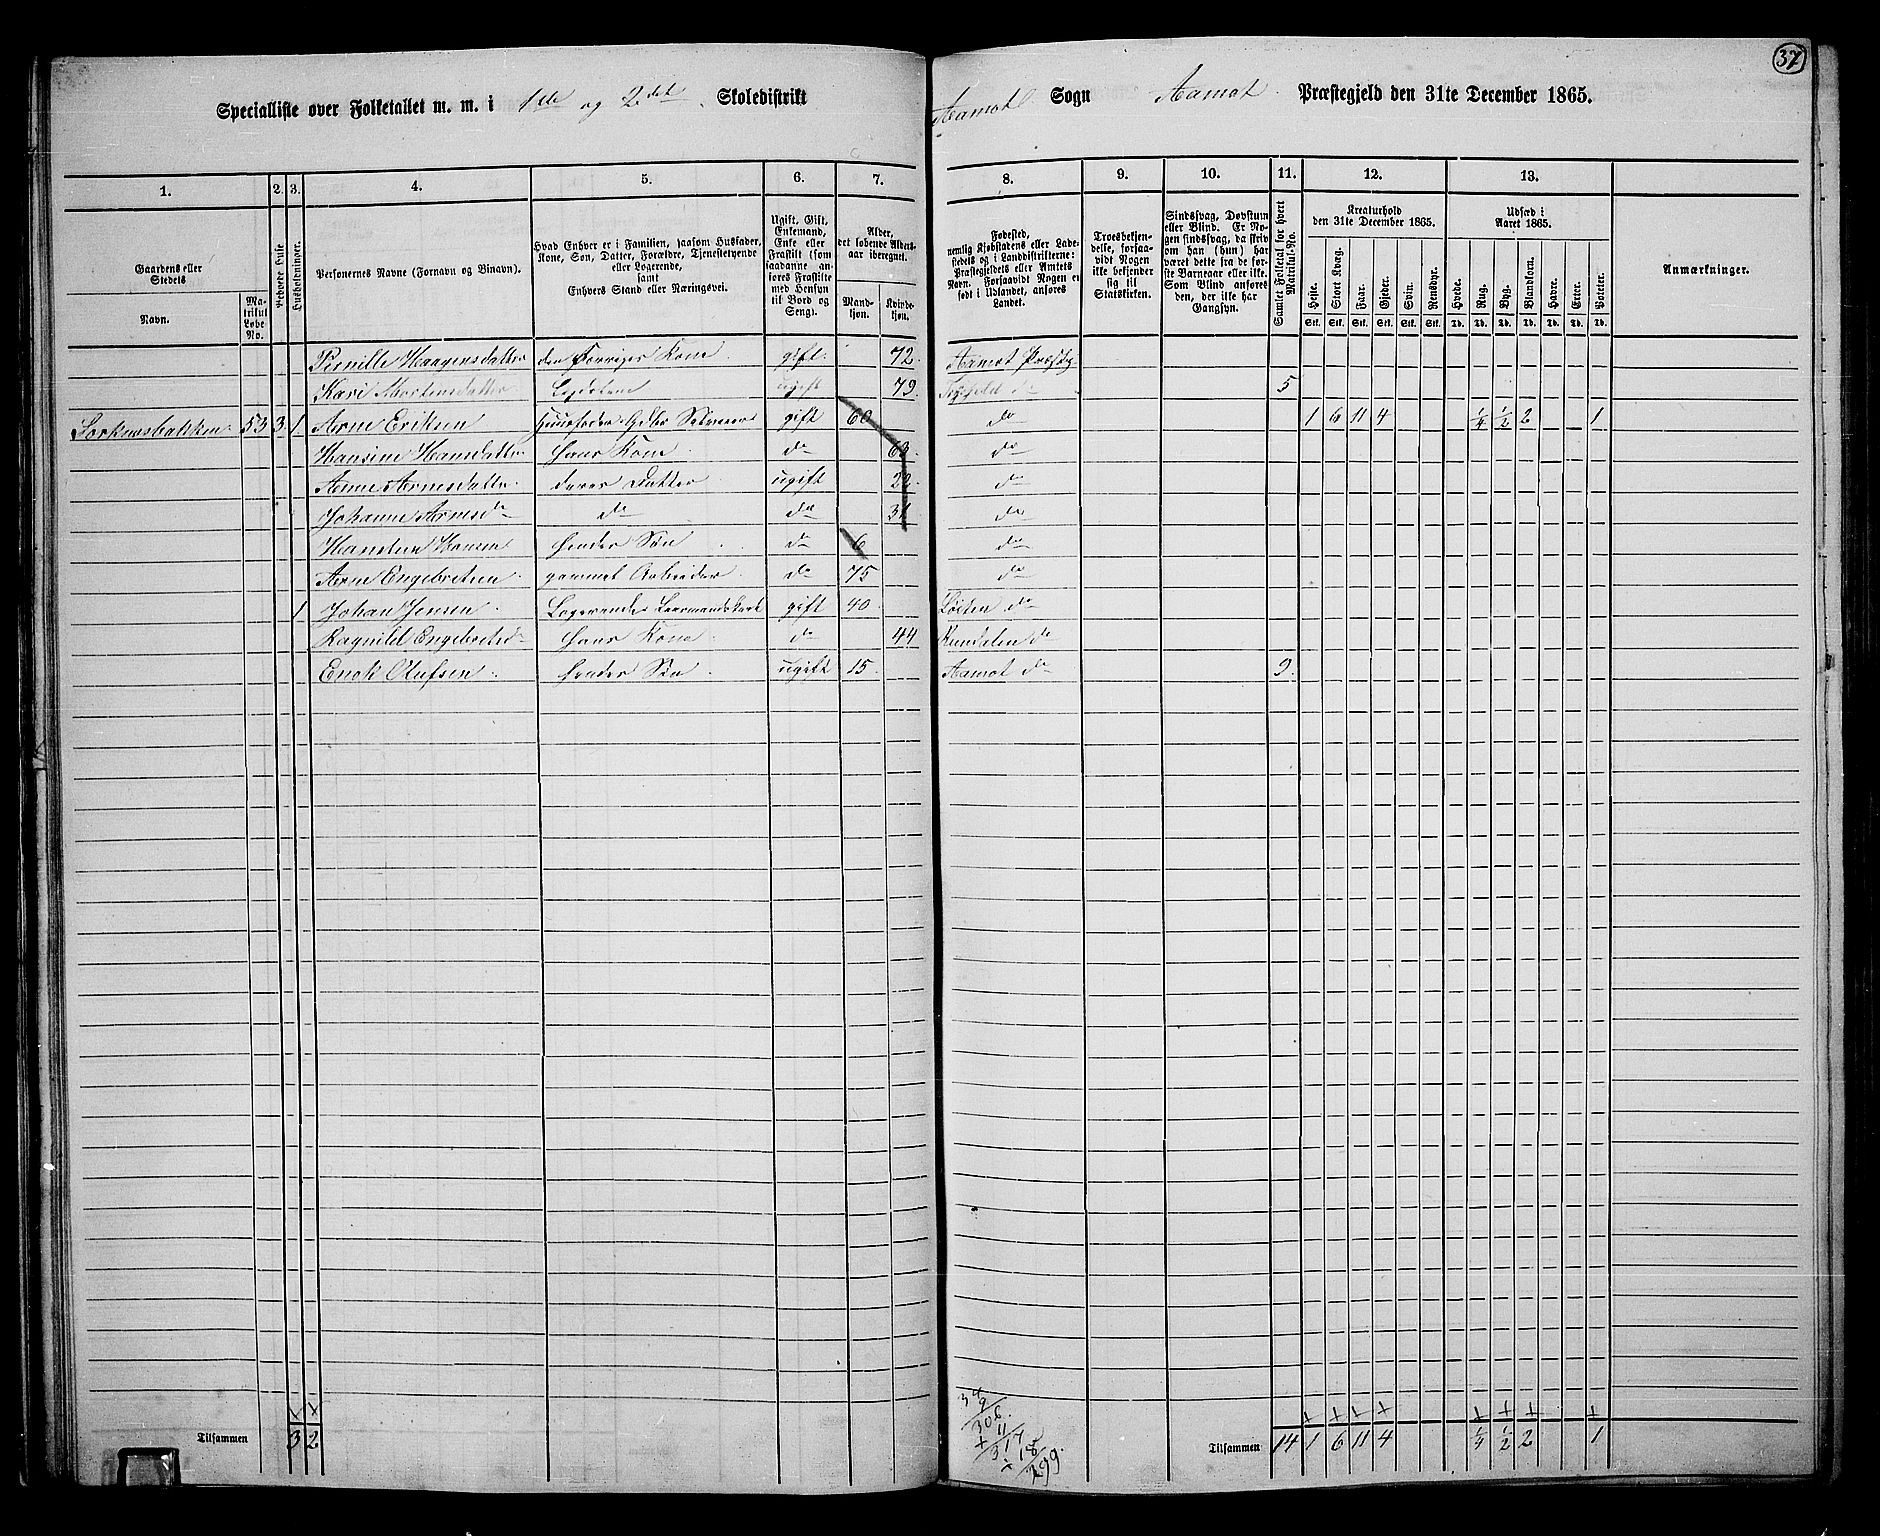 37
Specialliste over Folketallet m. m. i 1ste og 2det Skoledistrikt Aamot Sogn Aamot Præstegjeld den 31te December 1865.
1. 2. 3. 4. 5. 6. 7. 8. 9. 10. 11. 12. 13.
Gaardens eller Stedets
Navn.
Matrikul Løbe-No.
Beboede Huse
Husholdninger.
Personernes Navne (Fornavn og Binavn).
Hvad Enhver er i Familien, saasom Husfader,
Kone, Søn, Datter, Forældre, Tjenestetyende
eller Logerende,
samt
Enhvers Stand eller Næringsvei.
Ugift, Gift,
Enkemand,
Enke eller
Fraskilt (som
saadanne anføres
Fraskilte
med Hensyn
til Bord og
Seng).
Alder,
det løbende Aldersaar
iberegnet.
Mandkjøn.
Kvindekjøn.
Fødested,
nemlig Kjøbstadens eller Ladestedets
og i Landdistrikterne:
Præstegjeldets eller Amtets
Navn. Forsaavidt Nogen er
født i Udlandet, anføres
Landet.
Troesbekjendelse,
forsaavidt
Nogen
ikke bekjender
sig til
Statskirken.
Sindssvag, Døvstum
eller Blind. Er Nogen
sindssvag, da skriv
om han (hun) har
været dette fra de første
Barneaar eller ikke.
Som Blind anføres
den, der ikke har
Gangsyn.
Samlet Folketal for hvert Matrikul-No.
Kreaturhold
den 31te December 1865.
Heste. Stort Kvæg. Faar. Gjeder. Svin. Rensdyr.
Stk. Stk. Stk. Stk. Stk. Stk.
Udsæd i
Aaret 1865.
Hvede. Rug. Byg. Blandkorn. Havre. Erter. Poteter.
Td. Td. Td. Td. Td. Td. Td.
Anmærkninger.
Pernille Haagensdatter den Forriges Kone gift 72 Aamot Præstg
Kari Mortensdatter Lægdslem ugift 79 do 5
Sorknesbakken 53 3 1 Arne Eriksen gift 60 do 1 6 11 4 1/4 1/2 2 1
Hansine Hansdatter hans Kone do 63 do
Anne Arnesdatter deres Datter ugift do
Johanne Arnesd do do 31 do
Hansen hendes Søn do 6 do
Arne Engebretsen gammel Arbeider do 75 do
1 Johan Jensen Logerende gift 40 Løiten do
Ragnild Engebretsd hans Kone do 44 Rendalen do
Enok Olufsen hendes Søn ugift 15 Aamot do 9
Tilsammen 3 2
306
+ 11
317
÷ 18
299
Tilsammen 14 1 6 11 4 1/4 1/2 2 1